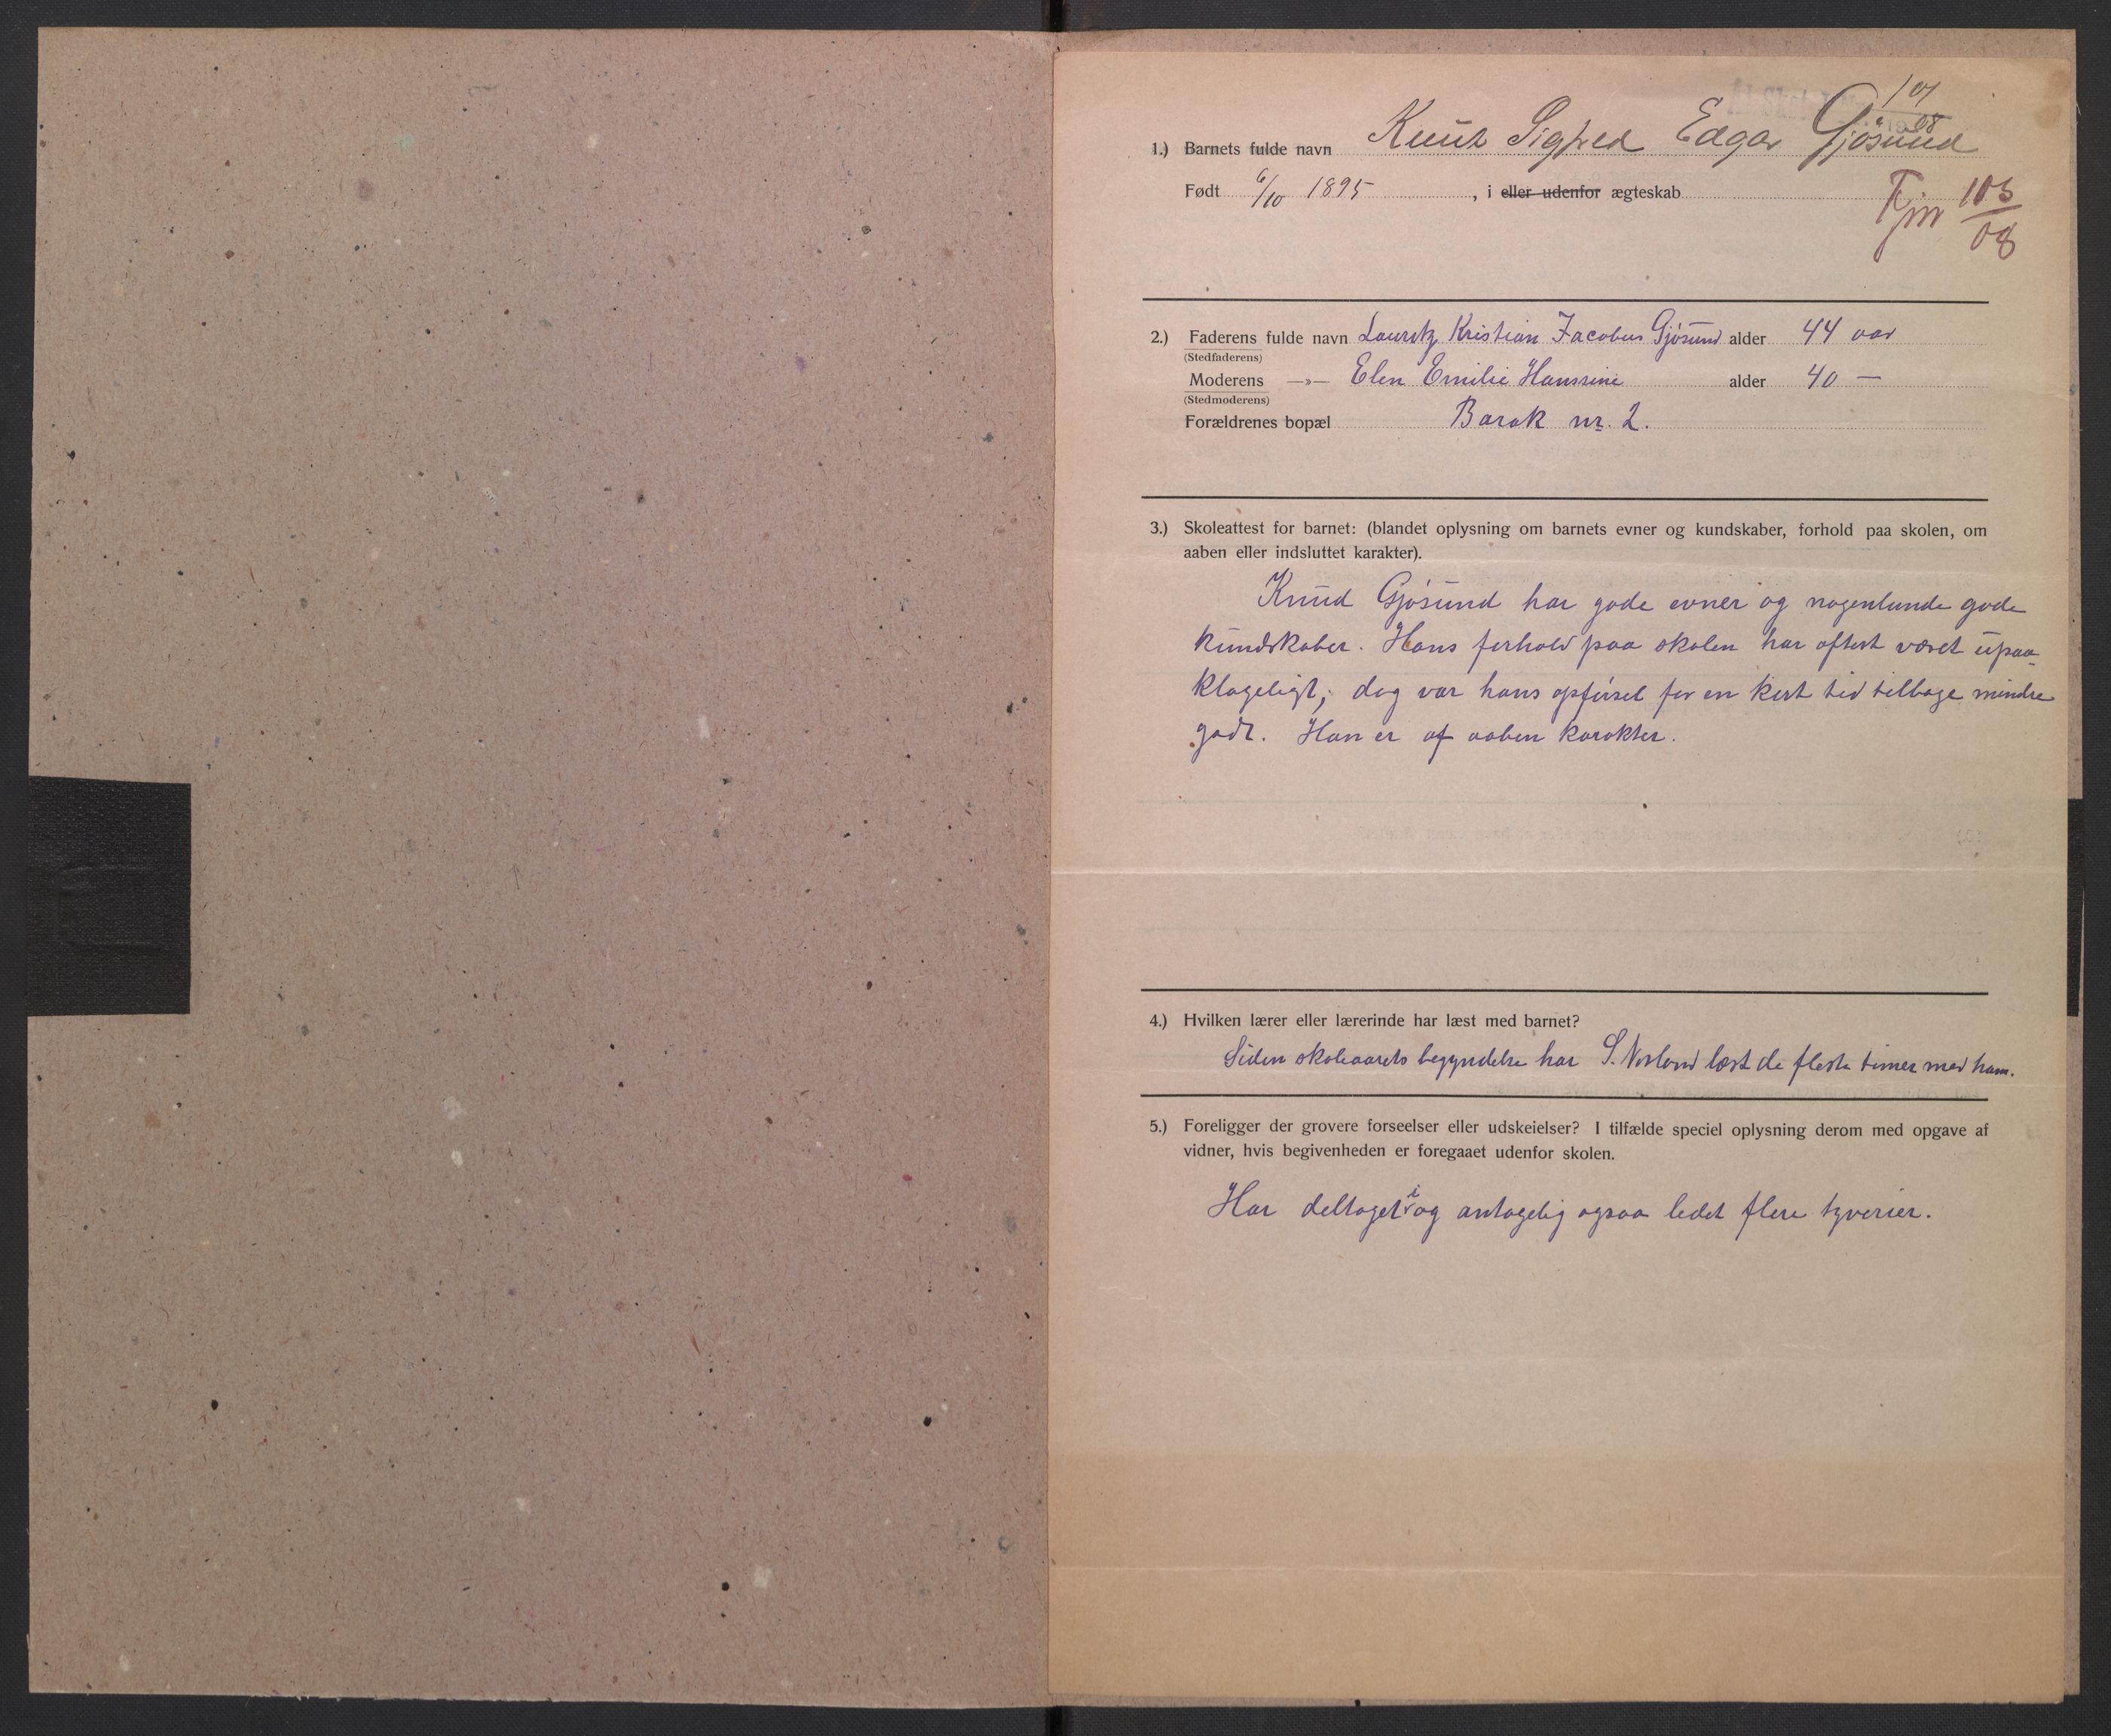 10/08
1.) Barnets fulde navn Knut Sigfred Edgar Gjøsund
Født 6/10 1895, i eller udenfor ægteskab
103/08
2.) Faderens fulde navn Lauritz Kristian Jacobus Gjøsund alder 44 aar
(Stedfaderens)
Moderens —»— Elen Emilie Hanssine alder 40 —
(Stedmoderens)
Forældrenes bopæl Barak nr. 2.
3.) Skoleattest for barnet: (blandet oplysning om barnets evner og kundskaber, forhold paa skolen, om
aaben eller indsluttet karakter).
Knud Gjøsund har gode evner og nogenlunde gode
kundskaber. Hans forhold paa skolen har oftest været upaa-
klageligt; dog var hans opførsel for en kort tid tilbage mindre
godt. Han er af aaben karakter.
4.) Hvilken lærer eller lærerinde har læst med barnet?
Siden skoleaarets begyndelse har S. læst de fleste timer med ham.
5.) Foreligger der grovere forseelser eller udskeielser? I tilfælde speciel oplysning derom med opgave af
vidner, hvis begivenheden er foregaaet udenfor skolen.
Har deltaget i og antagelig ogsaa ledet flere tyverier.